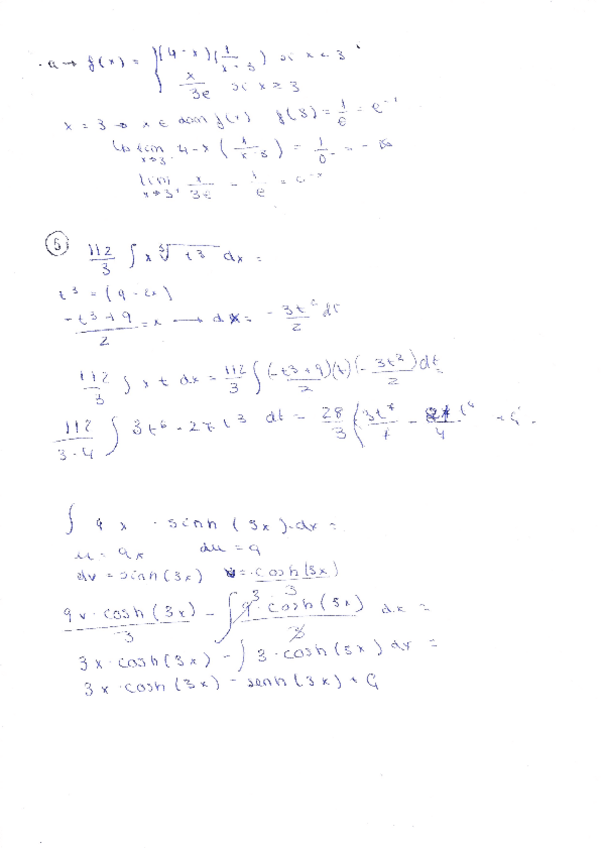 a → f(x) = { (4-x)(1/(x-3)) si x < 3
x/3e si x ≥ 3
x = 3 → x ∈ dom f(x) f(3) = 1/e = e^-1
lim x→3⁻ 4-x (1/(x-3)) = 1/0⁻ = -∞
lim x→3⁺ x/3e = 1/e =
(5) 112/3 ∫ x ∛ t3 dx =
t³ = (9-2x)
(-t³+9)/2 = x → dx = - 3t²/2 dt
112/3 ∫ x t dx = 112/3 ∫ (-t³+9)/2 (t) (-3t²/2) dt =
112/(3·4) ∫ 3t⁶ - 27t³ dt = 28/3 (3t⁷/7 - 27t⁴/4
∫ 9x · sinh(3x)·dx =
u = 9x du = 9
dv = sinh(3x) v = cosh(3x)/3
9x·cosh(3x)/3 - ∫ 9·cosh(3x)/3 dx =
3x·cosh(3x) - ∫ 3·cosh(3x) dx =
3x·cosh(3x) - senh(3x) + C